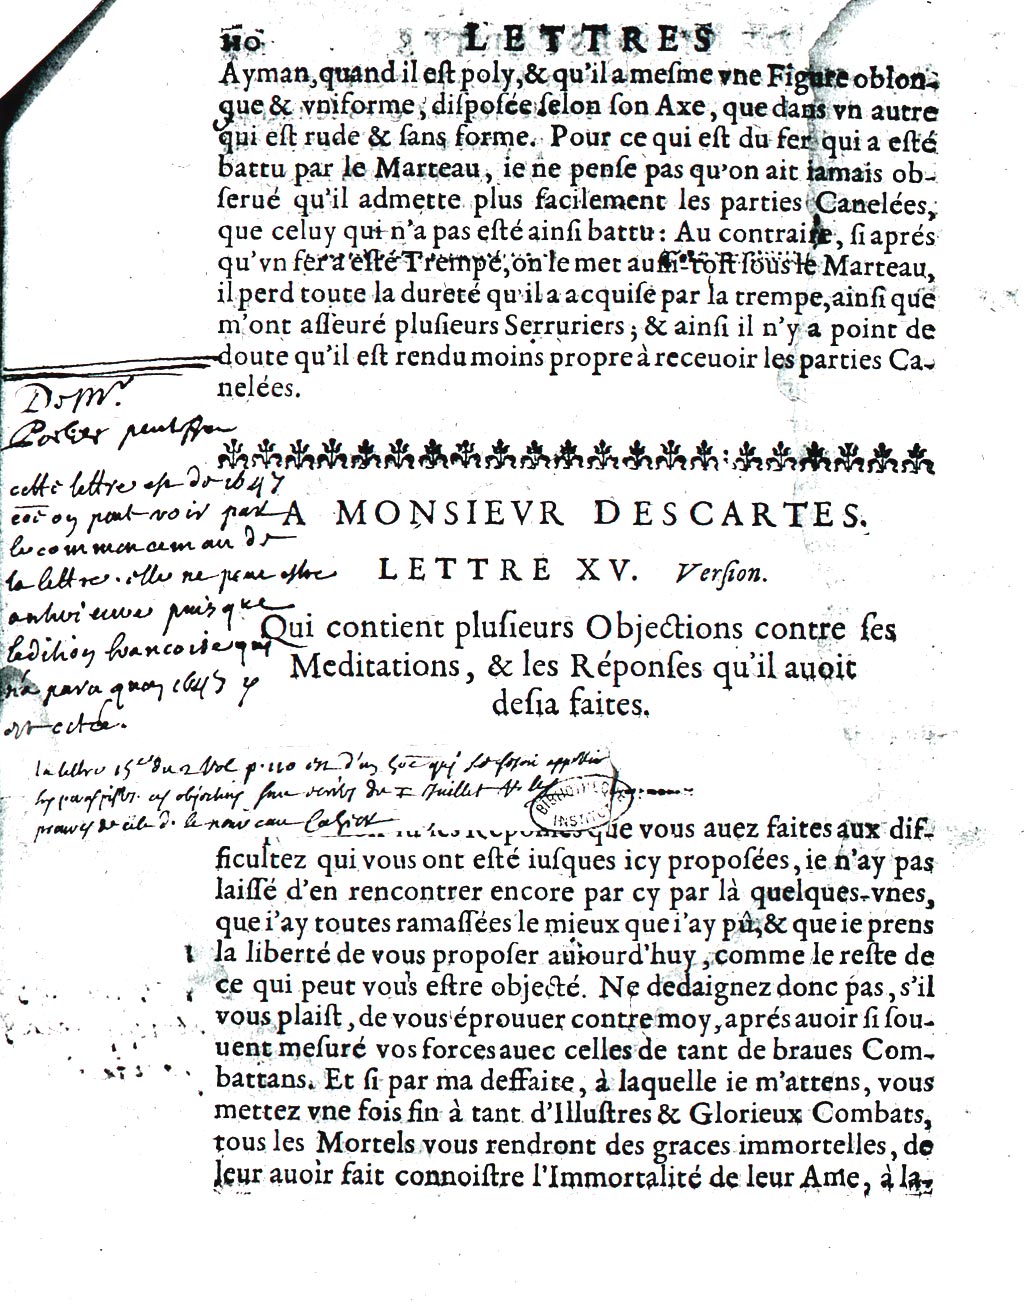 110 LETTRES
Ayman, quand il eſt poly, & qu'il a meſme vne Figure oblon-
gue & vniforme, diſpoſée ſelon ſon Axe, que dans vn autre
qui eſt rude & ſans forme. Pour ce qui eſt du fer qui a eſté
battu par le Marteau, ie ne penſe pas qu'on ait iamais ob-
ſerué qu'il admette plus facilement les parties Canelées,
que celuy qui n'a pas eſté ainſi battu: Au contraire, ſi aprés
qu'vn fer a eſté Trempé, on le met auſſi-toſt ſous le Marteau,
il perd toute la dureté qu'il a acquiſe par la trempe, ainſi que
m'ont aſſeuré pluſieurs Serruriers; & ainſi il n'y a point de
doute qu'il eſt rendu moins propre à receuoir les parties Ca-
nelées.
De Mr.
cette lettre est de 1647
on peut voir par
le commencement de
la lettre. elle ne peut estre
puisque
l'edition francoise qui
n'a paru qu'en 1647 y
est citée.
A MONSIEVR DESCARTES.
LETTRE XV. Verſion.
Qui contient pluſieurs Objections contre ſes
Meditations, & les Réponſes qu'il auoit
deſia faites.
la lettre 15e du 2 Vol p. 110 est d'un
objections Juillet
de le nouveau Cahier
BIBLIOTHEQUE
INSTITUT
les Réponſes que vous auez faites aux dif-
ficultez qui vous ont eſté iuſques icy propoſées, ie n'ay pas
laiſſé d'en rencontrer encore par cy par là quelques-vnes,
que i'ay toutes ramaſſées le mieux que i'ay pû, & que ie prens
la liberté de vous propoſer auiourd'huy, comme le reſte de
ce qui peut vous eſtre objecté. Ne dedaignez donc pas, s'il
vous plaiſt, de vous éprouuer contre moy, aprés auoir ſi ſou-
uent meſuré vos forces auec celles de tant de braues Com-
battans. Et ſi par ma deffaite, à laquelle ie m'attens, vous
mettez vne fois fin à tant d'Illuſtres & Glorieux Combats,
tous les Mortels vous rendront des graces immortelles, de
leur auoir fait connoiſtre l'Immortalité de leur Ame, à la-